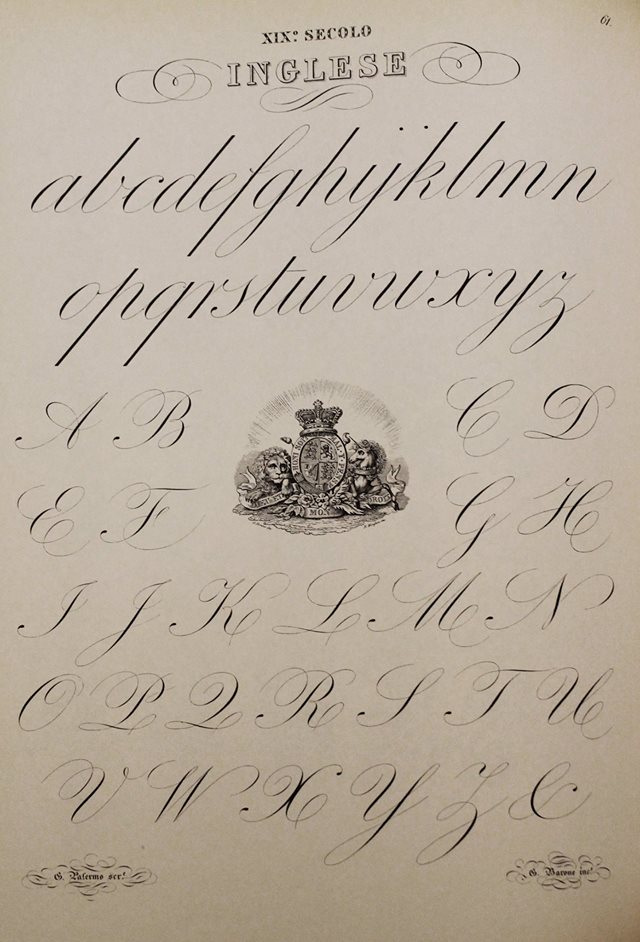 61.
XIXº. SECOLO
INGLESE
abcdefghijklmn
opqrstuvwxyz
A B C D
E F G H
I J K L M N
O P Q R S T U
V W X Y Z &
DIEU ET MON DROIT
G. Palermo scr.
G. Barone inc.